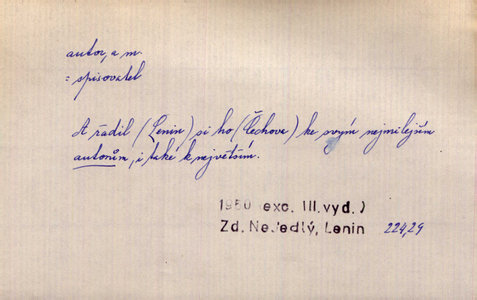 autor, a m.
= spisovatel
A řadil (Lenin) si ho (Čechova) ke svým nejmilejším
autorům, i také k největším.
1950 (exc. III. vyd.)
Zd. Nejedlý, Lenin 224,29